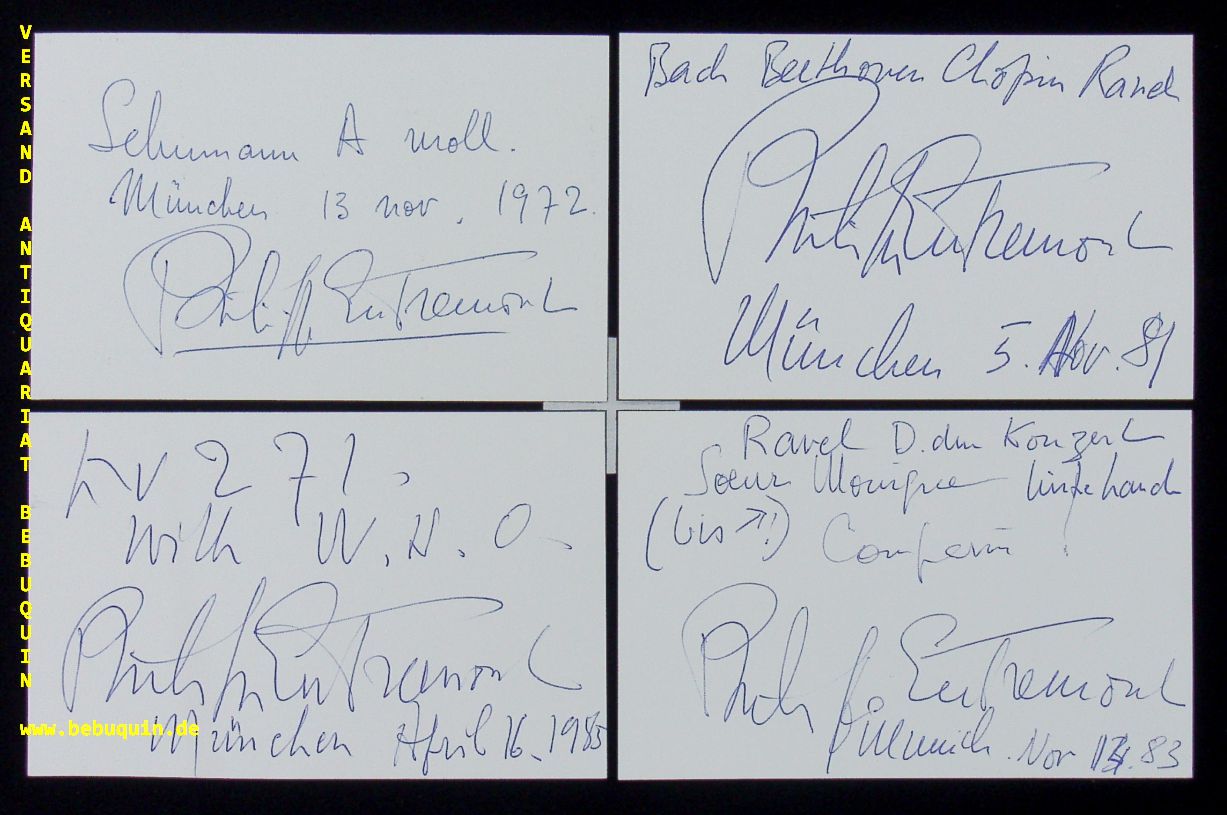 VERSAND ANTIQUARIAT BEBUQUIN
www.bebuquin.de
Schumann A moll.
München 13 nov. 1972.
Philippe Entremont
Bach Beethoven Chopin Ravel
Philippe Entremont
München 5. Nov. 81
KV 271.
with W.K.O.
Philippe Entremont
München April 16. 1985
Ravel D.dur Konzert
Soeur Monique linke hand
(bis ↗!) Couperin !
Philippe Entremont
Munich. Nov 83